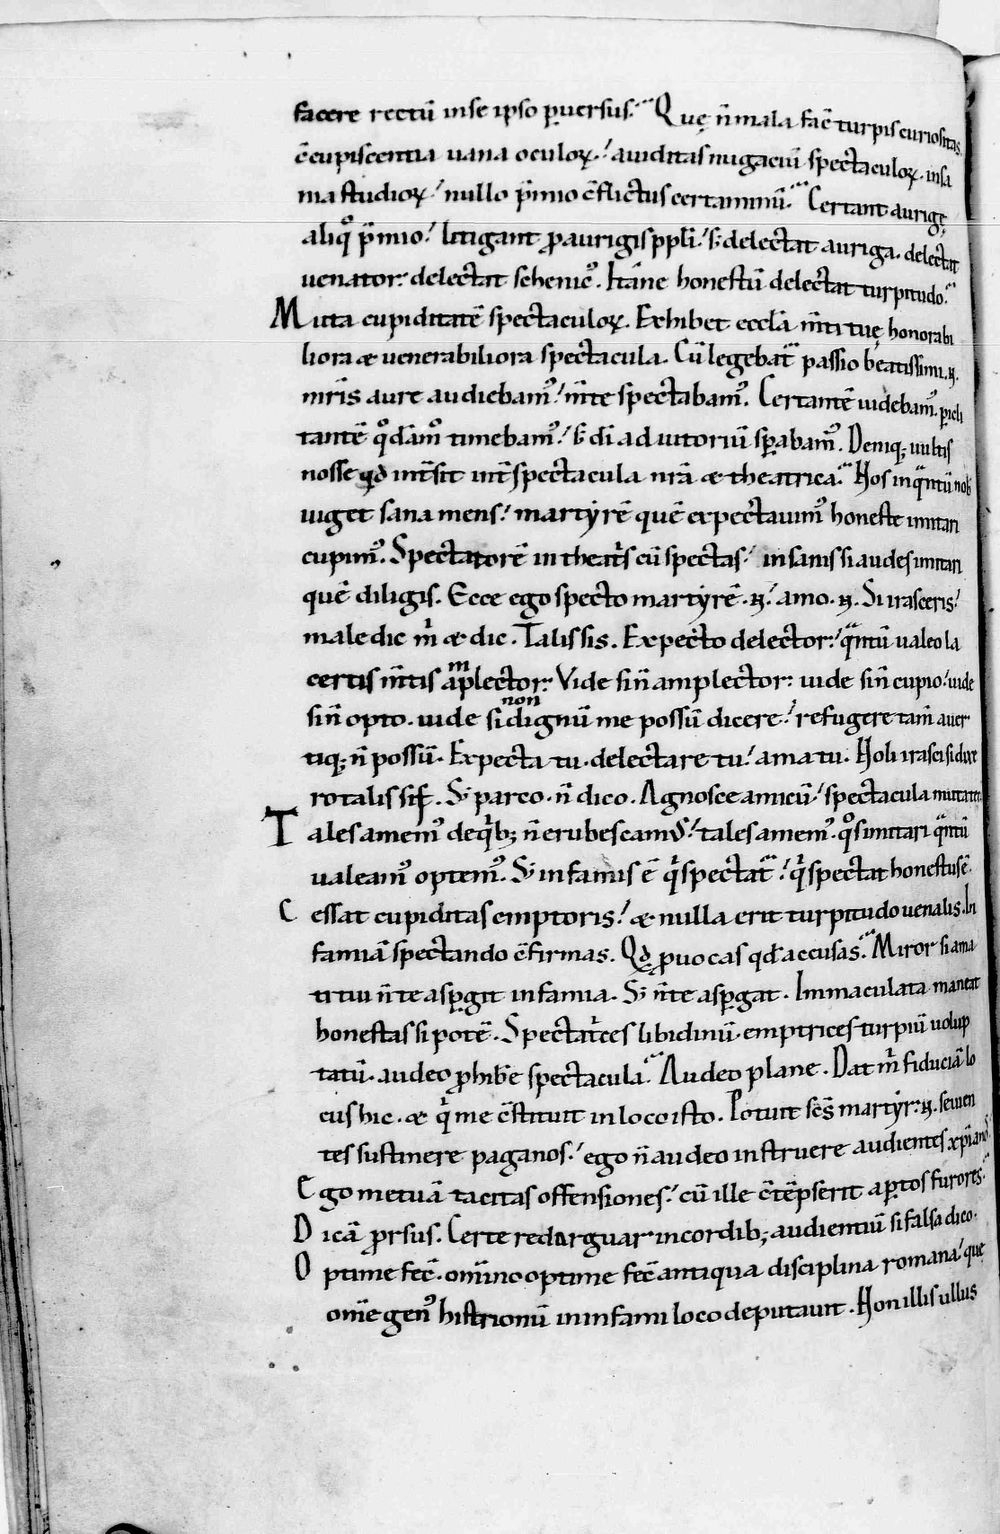 facere rectū inse ipso ꝑuersus. Quę n̄ mala fac̄ turpis curiositas.
c̄cupiscentia uana oculoꝝ. auiditas nugaciū spectaculoꝝ. insa
nia studioꝝ nullo p̄mio c̄flictus certaminū. Certant aurigę
aliq̊ p̄mio. litigant ꝓ aurigis ppl̄i. s; delectat auriga. delectat
uenator. delectat schenic᷒. Itāne honestū delectat turpitudo.
Muta cupiditatē spectaculoꝝ. Exhibet eccl̄a m̄ti tuę honorabi
liora æ uenerabiliora spectacula. Cū legebat᷑ passio beatissimi .N.
mr̄is aure audiebam᷒. m̄te spectabam᷒. Certantē uidebam᷒. ꝑicli
tantē q̊dam᷒ timebam᷒. s; dī adiutoriū sꝑabam᷒. Deniq; uultis
nosse qd int̄sit int̄ spectacula nr̄a æ theatrica. Nos inq̄ntū nob̄
uiget sana mens. martyrē quē expectauim᷒ honeste imitari
cupim᷒. Spectatorē in theat̄s cū spectas. insanis si audes imitari
quē diligis. Ecce ego specto martyrē .N. amo .N. Si irasceris.
maledic m̄ æ dic. Talis sis. Expecto delector. q̄ntū ualeo la
certis m̄tis amplector. Vide si n̄ amplector. uide si n̄ cupio. uide
si n̄ opto. uide si non dignū me possū dicere. refugere tam̄ auer
tiq; n̄ possū. Expecta tu. delectare tu. ama tu. Noli irasci si dixe
ro talis sis. S; parco. n̄ dico. Agnosce amicū. spectacula mutate.
Tales amem᷒ de qb; n̄ erubescam᷒. tales amem᷒. q̊s imitari q̄ntū
ualeam᷒ optem᷒. S; infamis ē q̇ spectat᷑. q̇ spectat honestus ē.
Cessat cupiditas emptoris. æ nulla erit turpitudo uenalis. In
famiā spectando c̄firmas. Qd ꝓuocas qd accusas. Miror si ama
ti tui n̄ te asꝑgit infamia. S; n̄ te asꝑgat. Immaculata maneat
honestas si potē. Spectatices libidinū. emptrices turpiū uolup
tatū. audeo ꝓhib̄e spectacula. Audeo plane. Dat m̄ fiduciā lo
cus hic. æ q̇ me c̄stituit in loco isto. Potuit sc̄s martyr .N. seuien
tes sustinere paganos. ego n̄ audeo instruere audientes xp̄ianos.
Ego metuā tacitas offensiones. cū ille c̄tēpserit aꝑtos furores.
Dicā ꝓrsus. Certe redarguar in cordib; audientiū si falsa dico.
Optime fec̄. omīno optime fec̄ antiqua disciplina romana. que
om̄e gen᷒ histrionū in infami loco deputauit. Non illis ullus